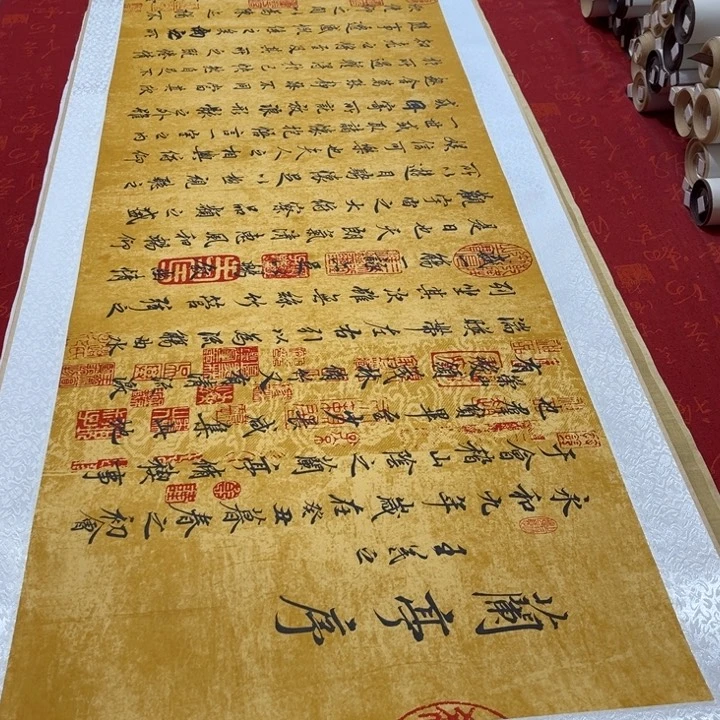 蘭亭序
王羲之
永和九年歲在癸丑暮春之初會
于會稽山陰之蘭亭脩稧事
也羣賢畢至少長咸集此地
有崇山峻領茂林脩竹又有清流激
湍暎帶左右引以為流觴曲水
列坐其次雖無絲竹管弦之
盛一觴一詠亦足以暢敘幽情
是日也天朗氣清惠風和暢仰
觀宇宙之大俯察品類之盛
所以遊目騁懷足以極視聽之
娛信可樂也夫人之相與俯仰
一世或取諸懷抱悟言一室之內
或因寄所託放浪形骸之外雖
趣舍萬殊靜躁不同當其欣
於所遇蹔得於己快然自足不
知老之將至及其所之既惓情
隨事遷感慨係之矣向之所
之間以為陳迹猶不